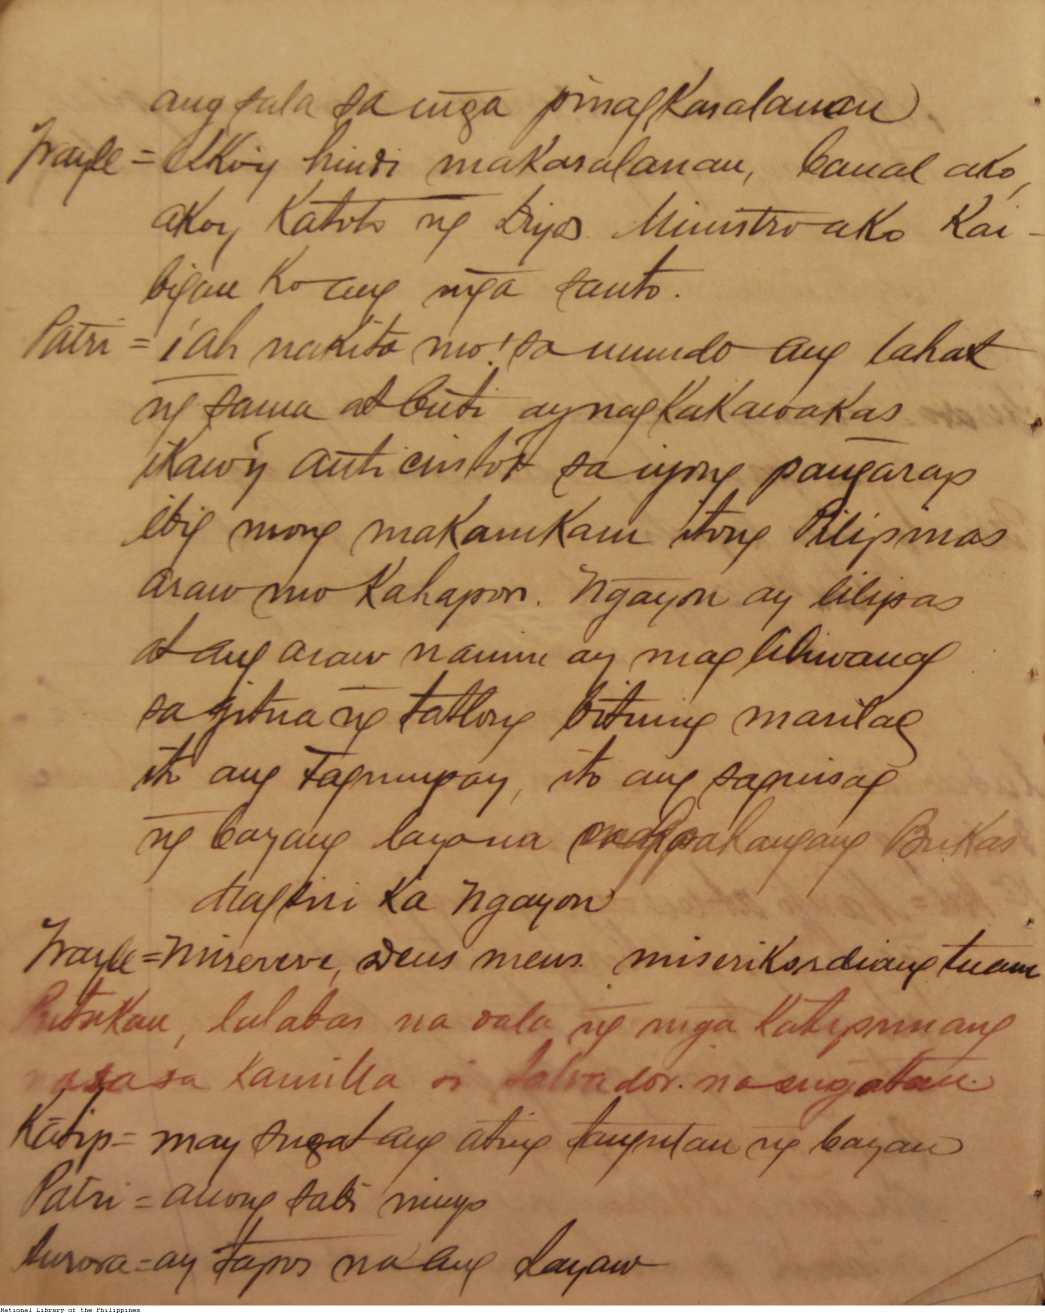 ang sala sa mga pinagkasalanan
Frayle = Ako'y hindi makasalanan, banal ako,
akoy Katoto ng Diyos. Ministro ako Kai-
bigan Ko ang mga santo.
Patri = ¡Ah nakita mo! sa mundo ang lahat
ng sama at buti ay nagkakawakas
ikaw'y anticristo sa iyong pangarap
ibig mong makamkam itong Pilipinas
araw mo Kahapon. Ngayon ay lilipas
at ang araw namin ay magliliwanag
sa gitna ng tatlong bituing marilag
ito ang Tagumpay, ito ang sagisag
ng bayang laya na Bukas
Magsisi Ka Ngayon
Frayle = Miserere, Deus meus. misericordiang tuam
Putukan, lalabas na dala ng mga Katipunang
nasa sa Kamilla si Salvador. na sugatan.
Katip = may sugat ang ating tanyutan ng bayan
Patri = anong sabi ninyo
Aurora = ay tapos na ang layaw
National Library of the Philippines